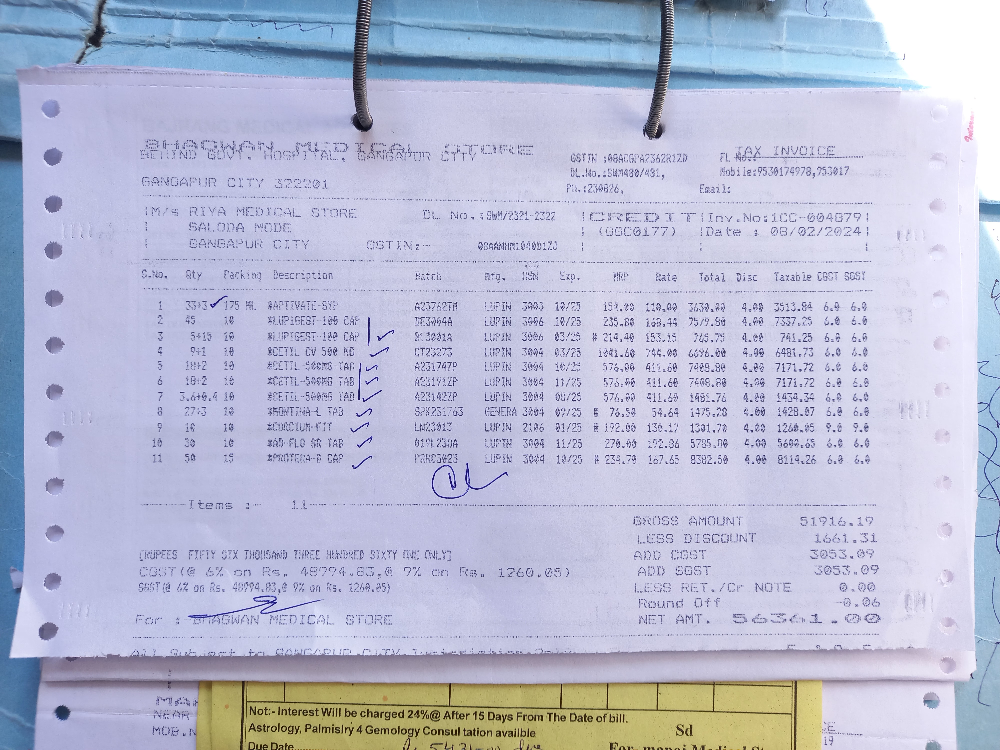 BHAGWAN MEDICAL STORE
BEHIND GOVT. HOSPITAL, GANGAPUR CITY
GANGAPUR CITY 322201
GSTIN :08ACGPA2362R1ZD
DL.No.:SWM480/481,
PH.:230826,
TAX INVOICE
Mobile:9530174978,953017
Email:
M/s RIYA MEDICAL STORE
SALODA MODE
GANGAPUR CITY GSTIN:-
DL No.:SWM/2321-2322
CREDIT
(GGC0177)
Inv.No:CC-004879
Date : 08/02/2024
S.No. Qty Packing Description Batch Mfg. HSN Exp. MRP Rate Total Disc Taxable CGST SGST
1 33+3 175 ML *APTIVATE-SYP A23762TM LUPIN 3003 10/25 110.00 3630.00 4.00 3513.84 6.0 6.0
2 45 10 *LUPIGEST-100 CAP LUPIN 3006 10/25 235.80 168.44 7579.80 4.00 7337.25 6.0 6.0
3 5+15 10 *LUPIGEST-100 CAP LUPIN 3006 03/25 # 214.40 153.15 765.75 4.00 741.25 6.0 6.0
4 9+1 10 *CETIL CV 500 CT23273 LUPIN 3004 03/25 1041.60 744.00 6696.00 4.00 6481.73 6.0 6.0
5 18+2 10 *CETIL-500MG TAB A231747P LUPIN 3004 10/25 576.00 411.60 7408.80 4.00 7171.72 6.0 6.0
6 18+2 10 *CETIL-500MG TAB LUPIN 3004 11/25 576.00 411.60 7408.80 4.00 7171.72 6.0 6.0
7 3.6+0.4 10 *CETIL-500MG TAB A23142ZP LUPIN 3004 08/25 576.00 411.60 1481.76 4.00 1434.34 6.0 6.0
8 27+3 10 *MONTINA-L TAB SPK231763 GENERA 3004 09/25 # 76.50 54.64 1475.28 4.00 1428.07 6.0 6.0
9 10 10 LN23013 LUPIN 2106 01/25 # 192.00 130.17 1301.70 4.00 1260.05 9.0 9.0
10 30 10 *AB FLO SR TAB LUPIN 3004 11/25 270.00 192.86 5785.80 4.00 5600.65 6.0 6.0
11 50 15 CAP LUPIN 3004 10/25 # 234.70 167.65 8382.50 4.00 8114.26 6.0 6.0
Items : 11
GROSS AMOUNT 51916.19
LESS DISCOUNT 1661.31
ADD CGST 3053.09
ADD SGST 3053.09
LESS RET./Cr NOTE 0.00
Round Off -0.06
NET AMT. 56361.00
[RUPEES FIFTY SIX THOUSAND THREE HUNDRED SIXTY ONE ONLY]
CGST(@ 6% on Rs. 48994.83,@ 9% on Rs. 1260.05)
SGST(@ 6% on Rs. 48994.83,@ 9% on Rs. 1260.05)
For : BHAGWAN MEDICAL STORE
All Subject to GANGAPUR CITY
NEAR
MOB.N
Not:- Interest Will be charged 24%@ After 15 Days From The Date of bill.
Astrology, Palmisiry 4 Gemology Consul tation availble
Due Date
Sd